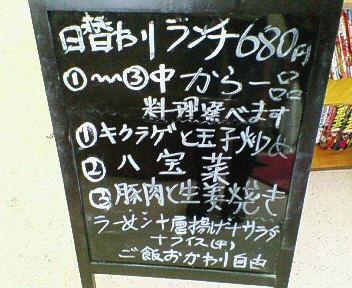 日替わりランチ680円
①〜③中から一品
料理選べます
①キクラゲと玉子炒め
②八宝菜
③豚肉と生姜焼き
ラーメン+唐揚げ+サラダ
+ライス(中)
ご飯おかわり自由